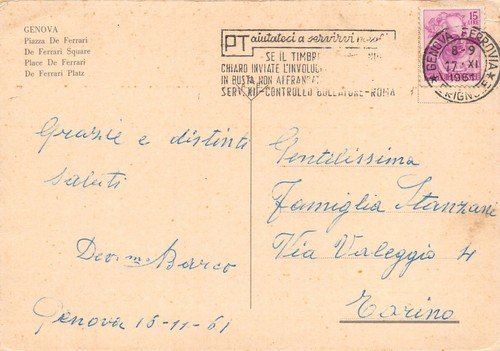 GENOVA
Piazza De Ferrari
De Ferrari Square
Place De Ferrari
De Ferrari Platz
PT aiutateci a servirvi
SE IL TIMBRE
CHIARO INVIATE L'INVOLUC
IN BUSTA NON AFFRANC
SERV. XII-CONTROLLO BOLLATURE-ROMA
15
LIRE
GENOVA FERROVIA
8-9
17 XI
1961
Grazie e distinti
saluti
Marco
Genova 16-11-61
Gentilissima
Famiglia Stanzani
Via Valeggio 4
Torino